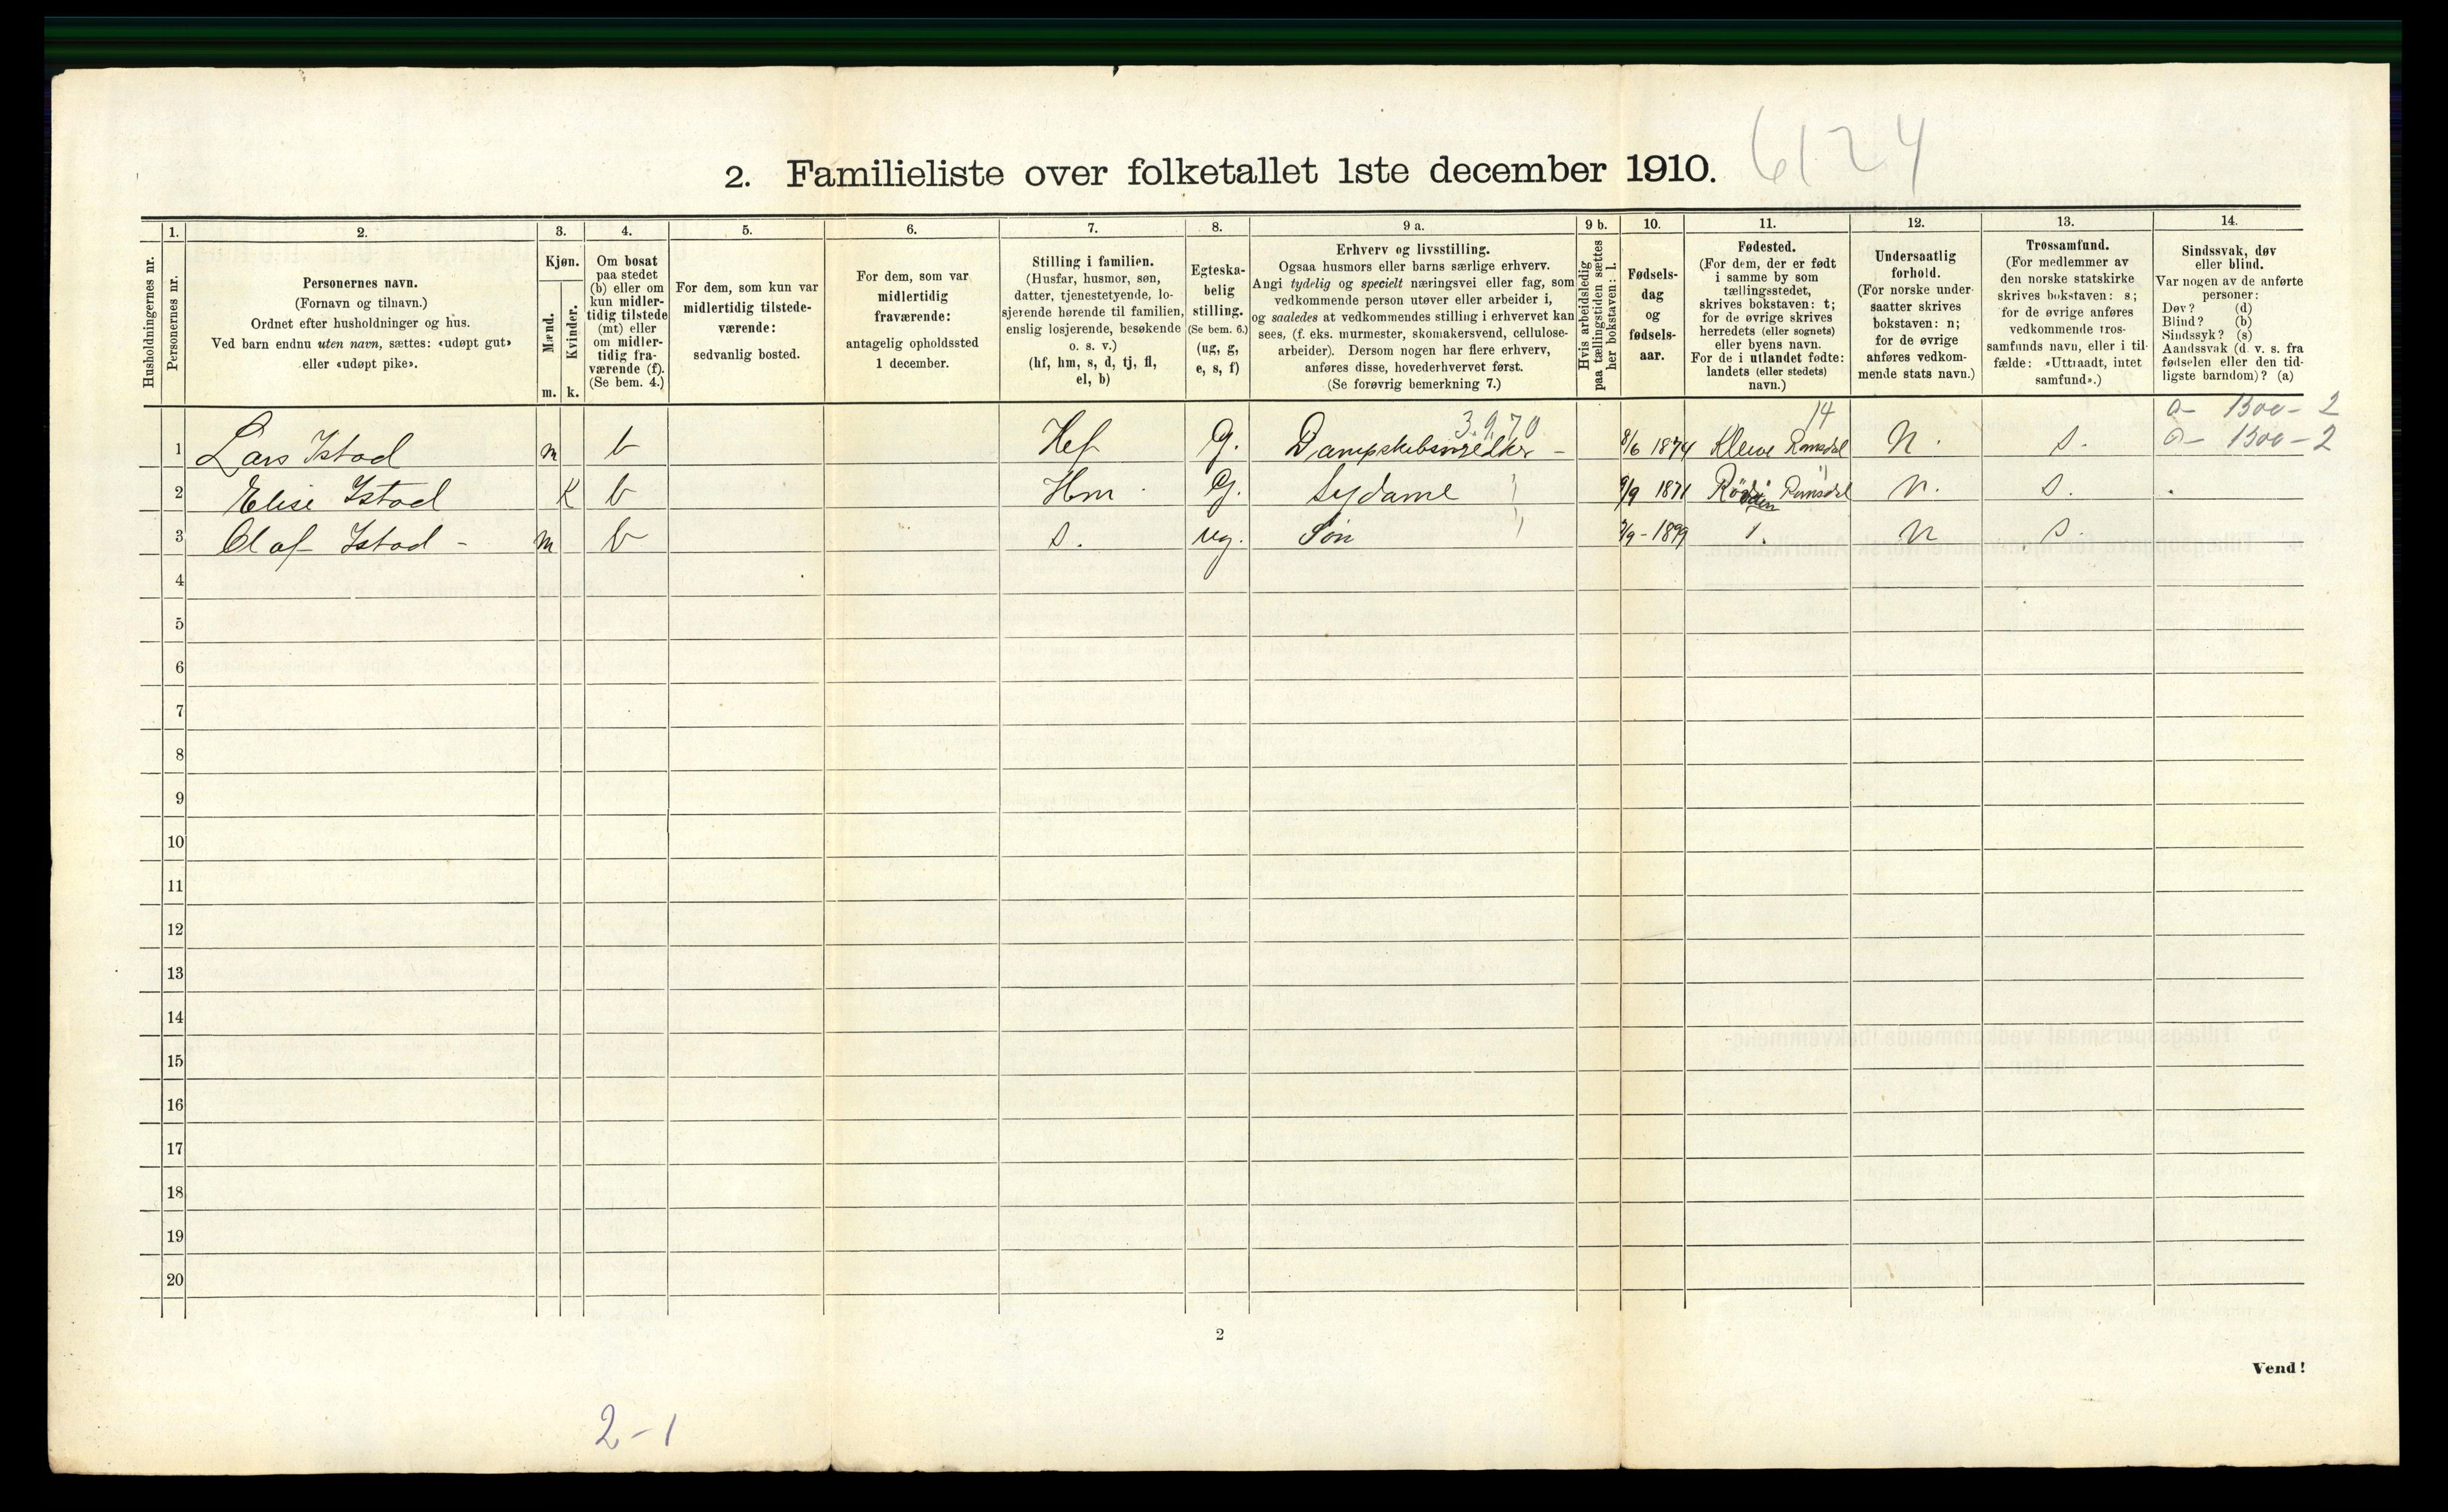 2. Familieliste over folketallet 1ste december 1910. 6124
1. 2. 3. 4. 5. 6. 7. 8. 9 a. 9 b. 10. 11. 12. 13. 14.
Husholdningernes nr.
Personernes nr.
Personernes navn.
(Fornavn og tilnavn.)
Ordnet efter husholdninger og hus.
Ved barn endnu uten navn, sættes: «udøpt gut»
eller «udøpt pike».
Kjøn.
Mænd.
Kvinder.
m. k.
Om bosat
paa stedet
(b) eller om
kun midler-
tidig tilstede
(mt) eller
om midler-
tidig fra-
værende (f).
(Se bem. 4.)
For dem, som kun var
midlertidig tilstede-
værende:
sedvanlig bosted.
For dem, som var
midlertidig
fraværende:
antagelig opholdssted
1 december.
Stilling i familien.
(Husfar, husmor, søn,
datter, tjenestetyende, lo-
sjerende hørende til familien,
enslig losjerende, besøkende
o. s. v.)
(hf, hm, s, d, tj, fl,
el, b)
Egteska-
belig
stilling.
(Se bem. 6.)
(ug, g,
e, s, f)
Erhverv og livsstilling.
Ogsaa husmors eller barns særlige erhverv.
Angi tydelig og specielt næringsvei eller fag, som
vedkommende person utøver eller arbeider i,
og saaledes at vedkommendes stilling i erhvervet kan
sees, (f. eks. murmester, skomakersvend, cellulose-
arbeider). Dersom nogen har flere erhverv,
anføres disse, hovederhvervet først.
(Se forøvrig bemerkning 7.)
Hvis arbeidsledig
paa tællingstiden sættes
her bokstaven: l.
Fødsels-
dag
og
fødsels-
aar.
Fødested.
(For dem, der er født
i samme by som
tællingsstedet,
skrives bokstaven: t;
for de øvrige skrives
herredets (eller sognets)
eller byens navn.
For de i utlandet fødte:
landets (eller stedets)
navn.)
Undersaatlig
forhold.
(For norske under-
saatter skrives
bokstaven: n;
for de øvrige
anføres vedkom-
mende stats navn.)
Trossamfund.
(For medlemmer av
den norske statskirke
skrives bokstaven: s;
for de øvrige anføres
vedkommende tros-
samfunds navn, eller i til-
fælde: «Uttraadt, intet
samfund».)
Sindssvak, døv
eller blind.
Var nogen av de anførte
personer:
Døv? (d)
Blind? (b)
Sindssyk? (s)
Aandssvak (d. v. s. fra
fødselen eller den tid-
ligste barndom)? (a)
3.9.70 14 a- 1300-2
1 Lars Istad m b Hef G. 8/6 1874 Kleive Romsdal N. s. 1300-2
2 Elise Istad K b Hm G. Sydame 9/9 1871 Romsdal n. s.
3 Olaf Istad - m b s. ug. Søn 1899 n s.
4
5
6
7
8
9
10
11
12
13
14
15
16
17
18
19
20
2
Vend!
2-1